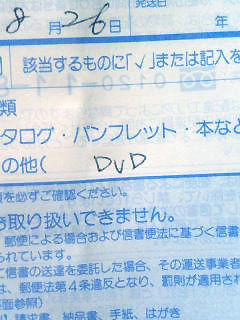 発送日
8月26日 年
該当するものに「√」または記入を
0120-1
類
タログ・パンフレット・本など
の他( DVD
を必ずご確認ください。
お取り扱いできません。
郵便による場合および信書便法に基づく信書
られています。
に信書の送達を委託した場合、その運送事業者
は、郵便法第4条違反となり、罰則が適用され
面参照)
請求書、納品書、手紙、はがき